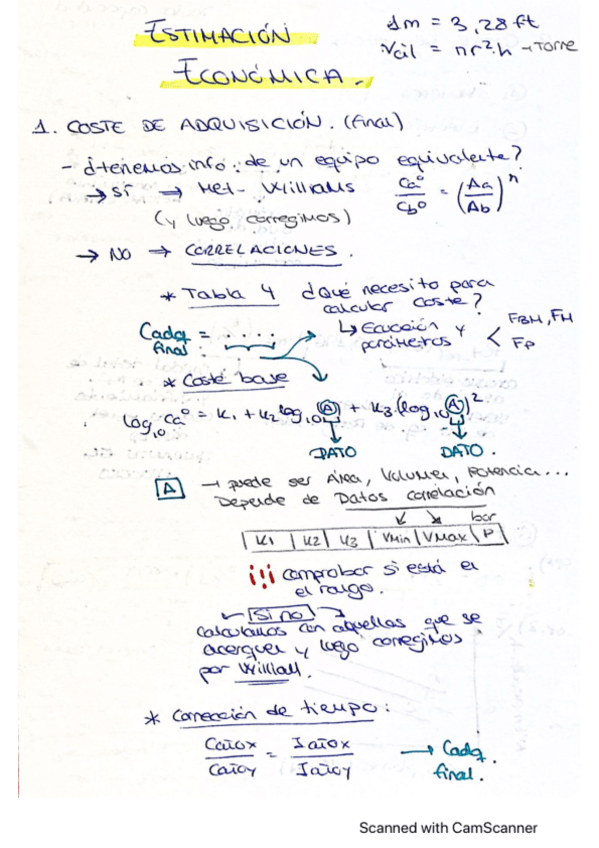 ESTIMACIÓN
ECONÓMICA.
1m = 3,28 ft
Vcil = πr²·h → Torre
1. COSTE DE ADQUISICIÓN. (final)
- ¿tenemos info. de un equipo equivalente?
→ SÍ → Met- Williams Ca⁰/Cb⁰ = (Aa/Ab)ⁿ
(y luego corregimos)
→ NO → CORRELACIONES.
* Tabla 4 ¿Qué necesito para
calcular coste?
Cadq = .....
final.
↳ Ecuación y
parámetros < FBM, FM
FP
* Coste base
log₁₀ Ca⁰ = K₁ + K₂ log₁₀ (A) + K₃ (log₁₀ (A))²
DATO DATO.
A → puede ser Área, Volumen, Potencia...
Depende de Datos correlación
bar
| K1 | K2 | K3 | Vmin | VMax | P |
¡¡¡ comprobar si está en
el rango.
Si no
calculamos con aquellas que se
acerquen y luego corregimos
por William.
* Corrección de tiempo:
Cañox/Cañoy = Iañox/Iañoy → Cadq
final.
Scanned with CamScanner